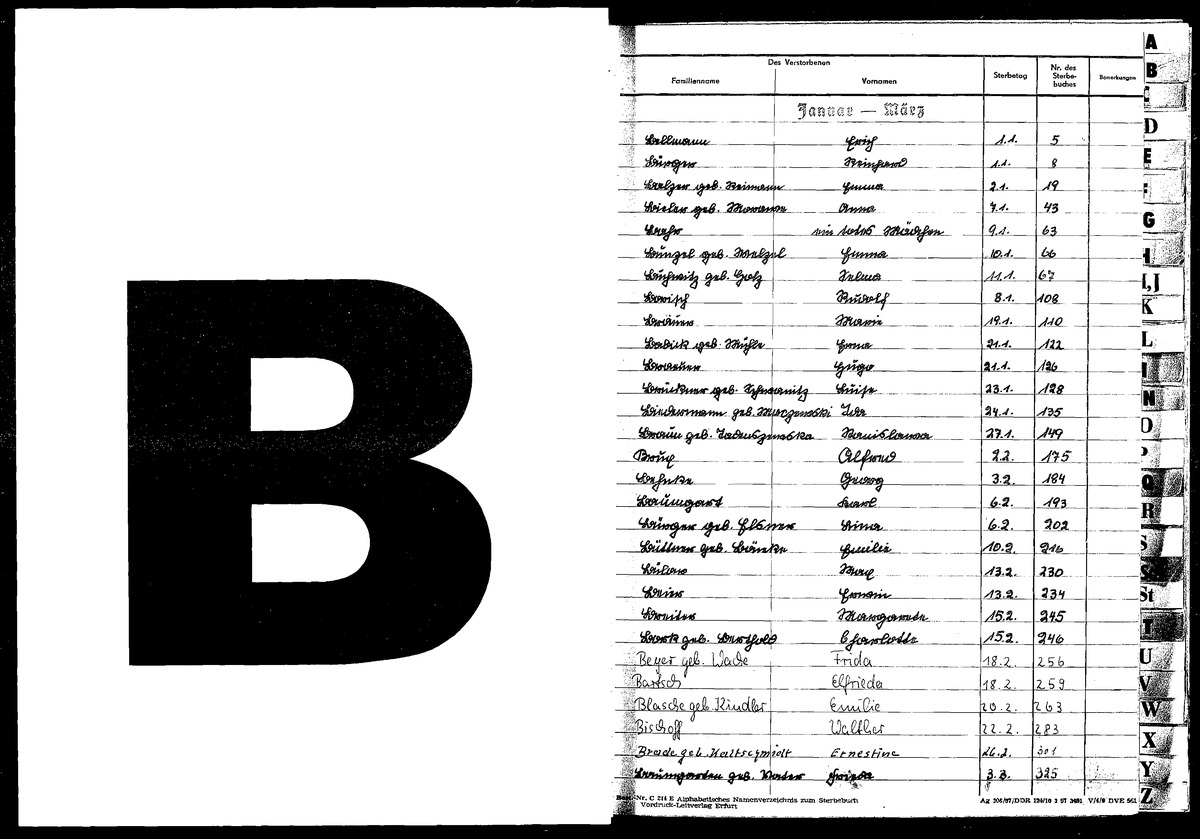 B
Des Verstorbenen
Familienname Vornamen Sterbetag Nr. des Sterbe-buches Bemerkungen
Januar — März
Bellmann Erich 1.1. 5
Bürger Reinhard 1.1. 8
Baelzer geb. Reimann Emma 2.1. 19
Bieler geb. Morawe Anna 7.1. 43
Baehr ein totes Mädchen 9.1. 63
Bunzel geb. Welzel Emma 10.1. 66
Buchwitz geb. Golz Selma 11.1. 67
Barisch Rudolf 8.1. 108
Brauer Marie 19.1. 110
Babick geb. Mühle Erna 21.1. 122
Brauner Hugo 21.1. 126
Brückner geb. Schwanitz Luise 23.1. 128
Biedermann geb. Marczewski Ida 24.1. 135
Braun geb. Stanislawa 27.1. 149
Brux Alfred 2.2. 175
Behnke Georg 3.2. 184
Baumgart Karl 6.2. 193
Bürger geb. Elsner Anna 6.2. 202
Büttner geb. Bänke Emilie 10.2. 216
Bülow Max 13.2. 230
Beier Erwin 13.2. 234
Breiter Margarete 15.2. 245
Bark geb. Berthold Charlotte 15.2. 246
Beyer geb. Wade Frida 18.2. 256
Bartsch Elfrieda 18.2. 259
Blasche geb. Kindler Emilie 20.2. 263
Bischoff Walther 22.2. 283
Brade geb. Kaltschmidt Ernestine 26.2. 301
Baumgarten geb. Vater Frieda 3.3. 325
Best.-Nr. C 214 E Alphabetisches Namenverzeichnis zum Sterbebuch
Vordruck-Leitverlag Erfurt
A
B
D
E
G
I, J
K
L
N
O
P
Q
R
S
St
U
V
W
X
Y
Z